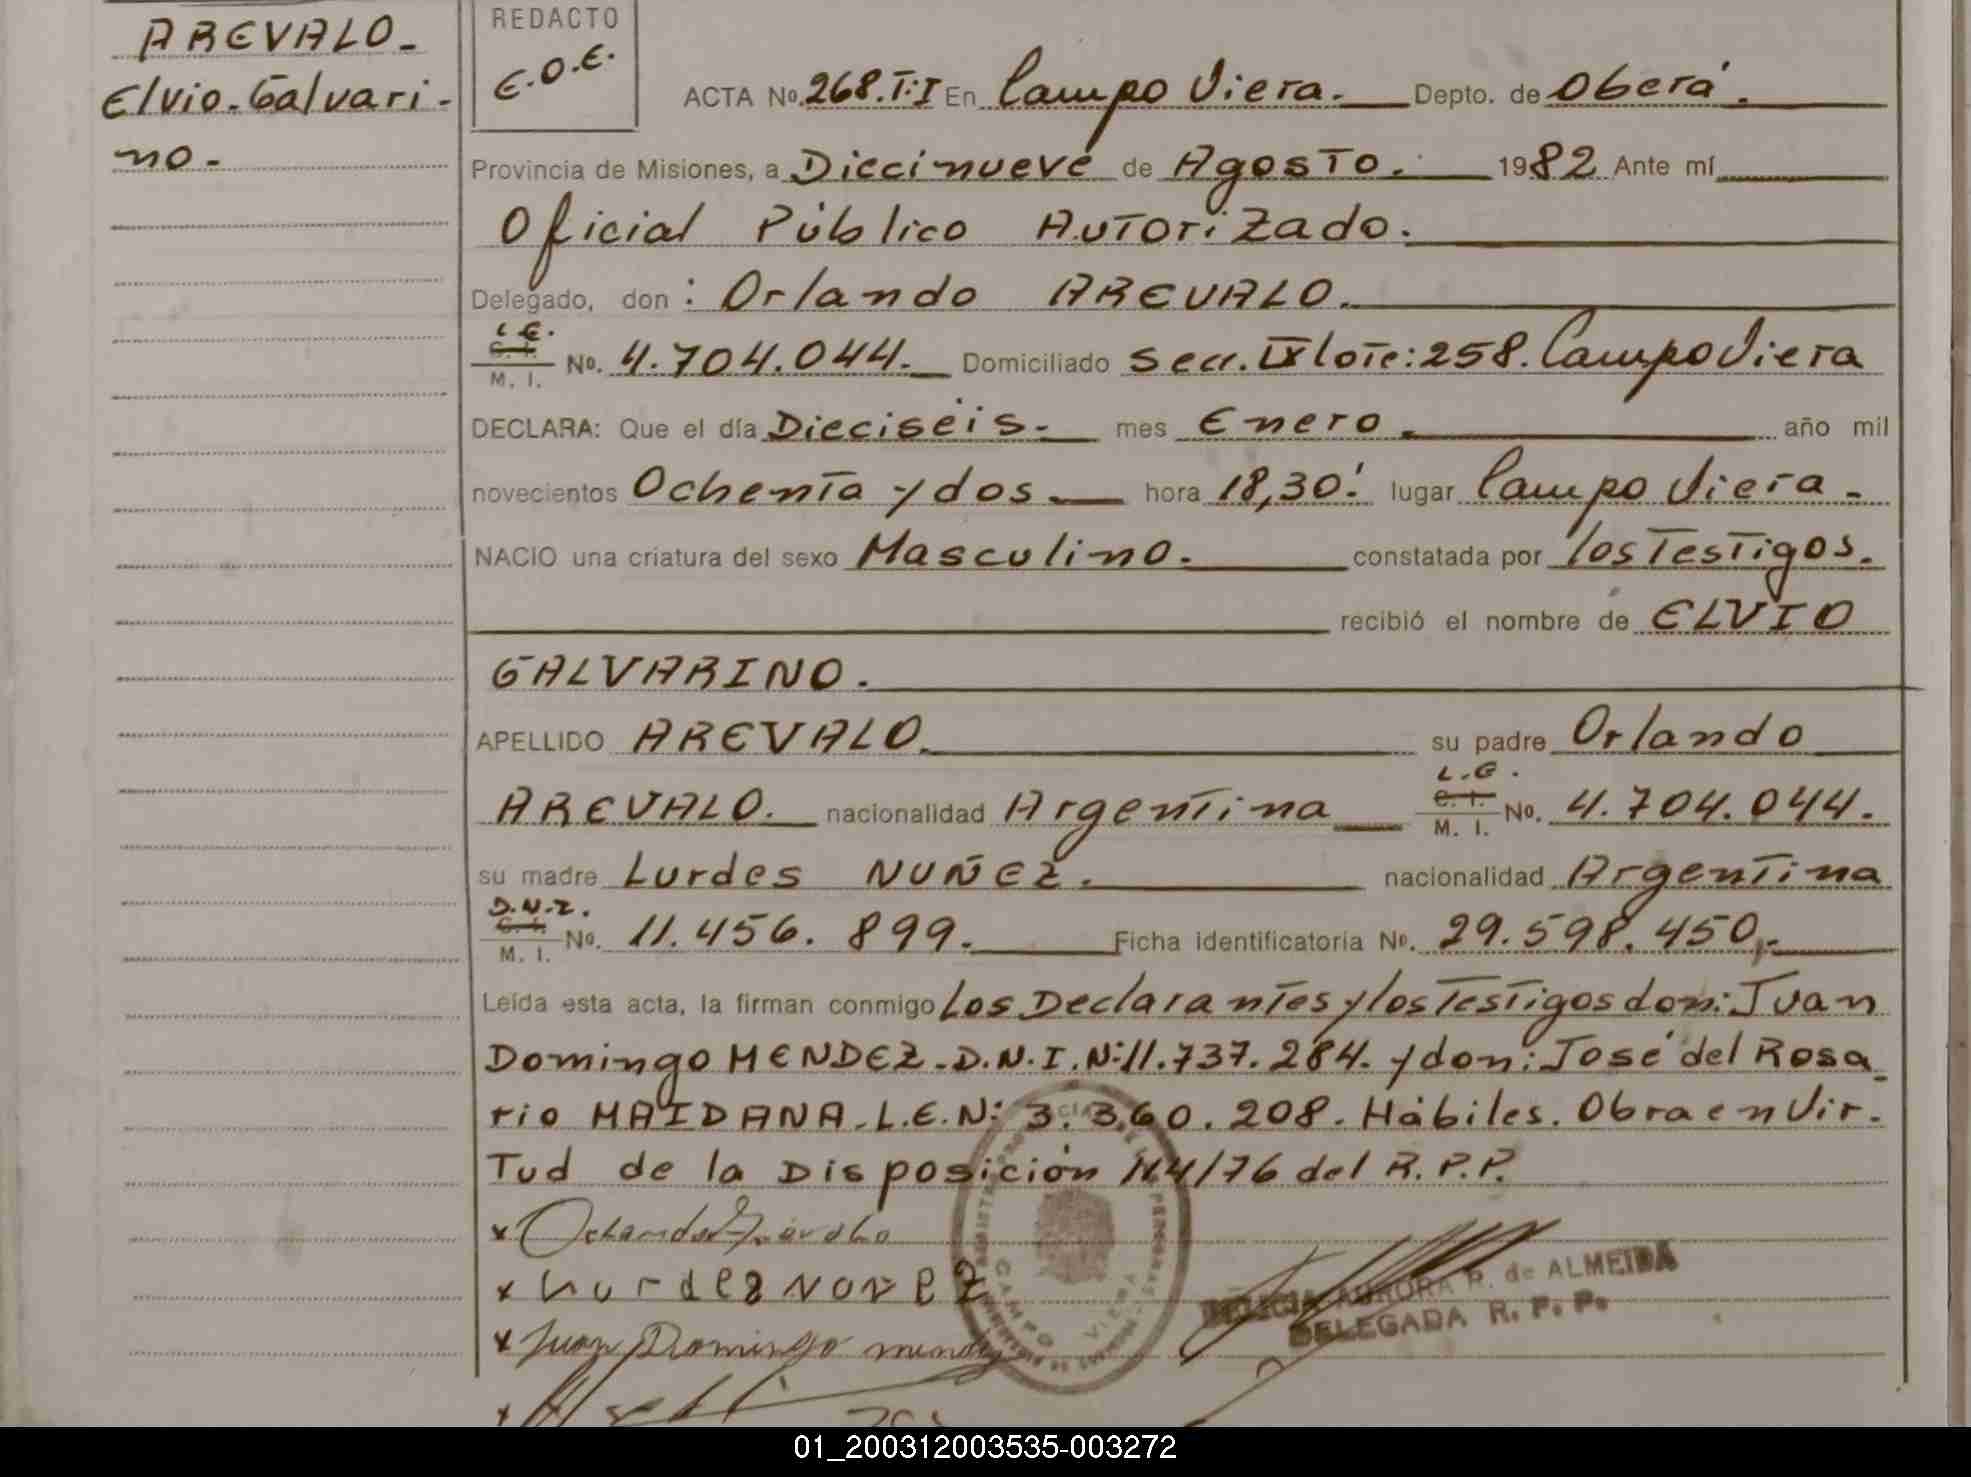 AREVALO-
Elvio-Galvari-
no-
REDACTO
E.O.E.
ACTA No. 268.T:I En Campo Viera. Depto. de Oberá.
Provincia de Misiones, a Diecinueve de Agosto. 1982 Ante mí
Oficial Público Autorizado.
Delegado, don: Orlando AREVALO.
L.E.
C. I.
M. I.
No. 4.704.044. Domiciliado Secc. IX lote: 258. Campo Viera
DECLARA: Que el día Dieciséis. mes Enero. año mil
novecientos Ochenta y dos. hora 18,30. lugar Campo Viera-
NACIO una criatura del sexo Masculino. constatada por los Testigos.
recibió el nombre de ELVIO
GALVARINO.
APELLIDO AREVALO. su padre Orlando
AREVALO. nacionalidad Argentina L.E. C. I. M. I. No. 4.704.044.
su madre Lurdes NUÑEZ. nacionalidad Argentina
D.N.I. C. I. M. I. No. 11.456.899. Ficha identificatoria No. 29.598.450.-
Leída esta acta, la firman conmigo Los Declarantes y los Testigos don: Juan
Domingo MENDEZ-D.N.I.N:11.737.284. y don: José del Rosa-
rio MAIDANA-L.E.N: 3.360.208. Hábiles. Obra en Vir-
Tud de la Disposición 114/76 del R.P.P.
x Orlando Arévalo
x Lurdes NUNEZ
x Juan Domingo mendez
CAMPO VIERA
AURORA R. de ALMEIDA
DELEGADA R. P. P.
01_200312003535-003272